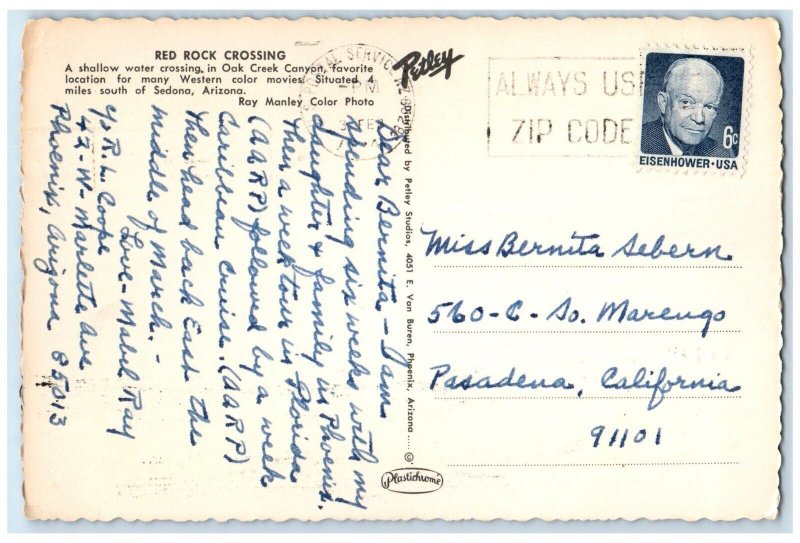 RED ROCK CROSSING
A shallow water crossing, in Oak Creek Canyon, favorite
location for many Western color movies. Situated 4
miles south of Sedona, Arizona.
Ray Manley Color Photo
Petley
POSTAL SERVICE
PM
FEB
ALWAYS USE
ZIP CODE
6c
EISENHOWER · USA
Dear Bernita - I am
spending six weeks with my
daughter & family in Phoenix.
Then a week tour in Florida
(AARP) followed by a week
Caribbean Cruise. (AARP)
Then head back East the
middle of March. -
Love - Mabel Ray
c/o R. L. Coope
42-W- Marlette Ave
Phoenix, Arizona 85013
Distributed by Petley Studios, 4051 E. Van Buren, Phoenix, Arizona
©
Plastichrome
Miss Bernita Sebern
560-C- So. Marengo
Pasadena, California
91101